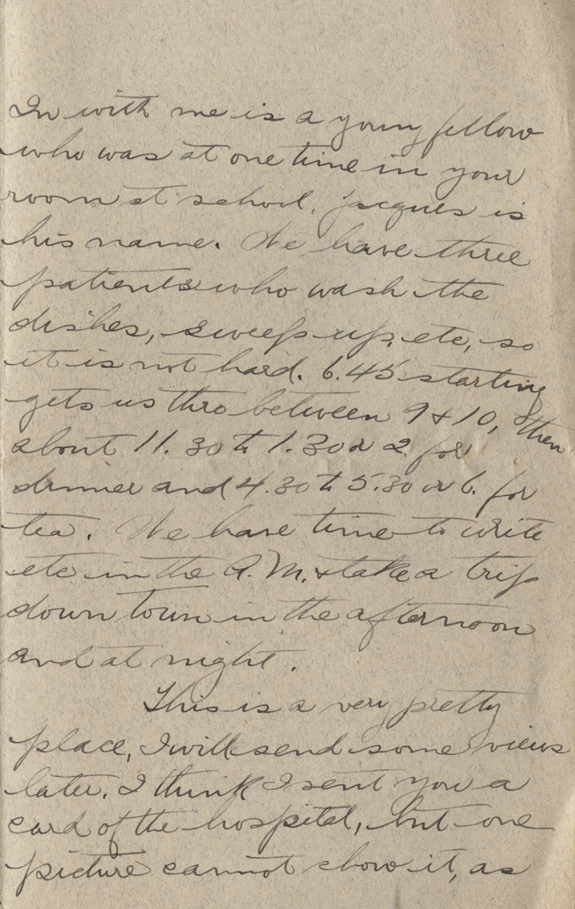 In with me is a young fellow
who was at one time in your
room at school. Jacques is
his name. We have three
patients who wash the
dishes, sweep up, etc, so
it is not hard. 6.45 starting
gets us thro between 9 & 10, then
about 11.30 to 1.30 or 2 for
dinner and 4.30 to 5.30 or 6. for
tea. We have time to write
etc in the A.M. & take a trip
down town in the afternoon
and at night.
This is a very pretty
place, I will send some views
later. I think I sent you a
card of the hospital, but one
picture cannot show it, as